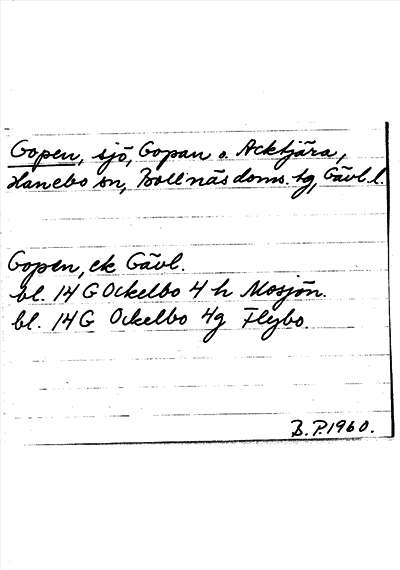 Gopen, sjö, Gopan o. Acktjära,
Hanebo sn, Bollnäs doms. tg, Gävl. l.
Gopen, ek Gävl.
bl. 14 G Ockelbo 4 h Mosjön.
bl. 14 G Ockelbo 4g Flybo.
B. P. 1960.